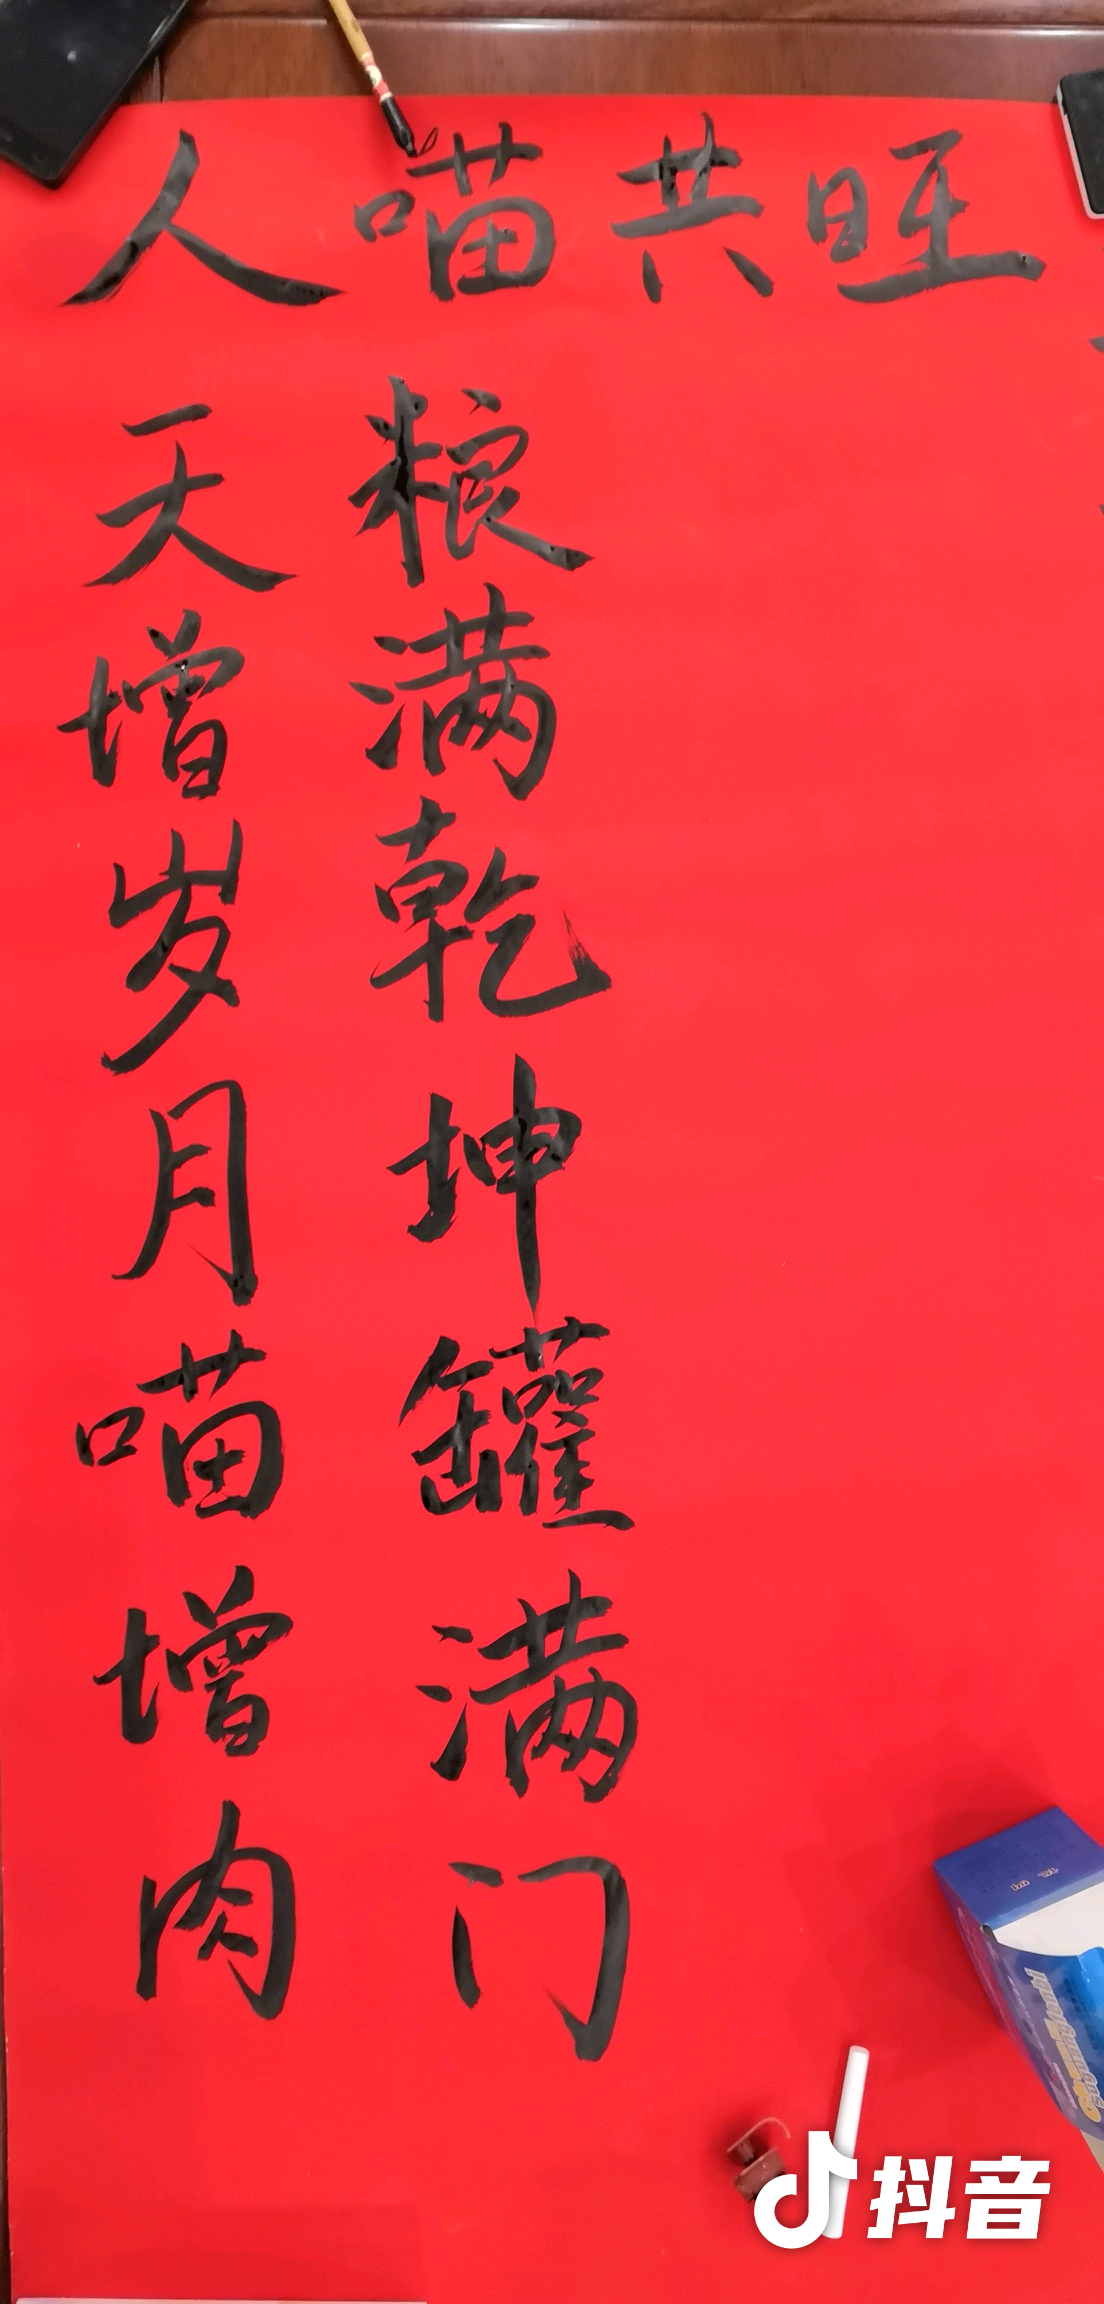 人喵共旺
天增岁月喵增肉
粮满乾坤罐满门
抖音